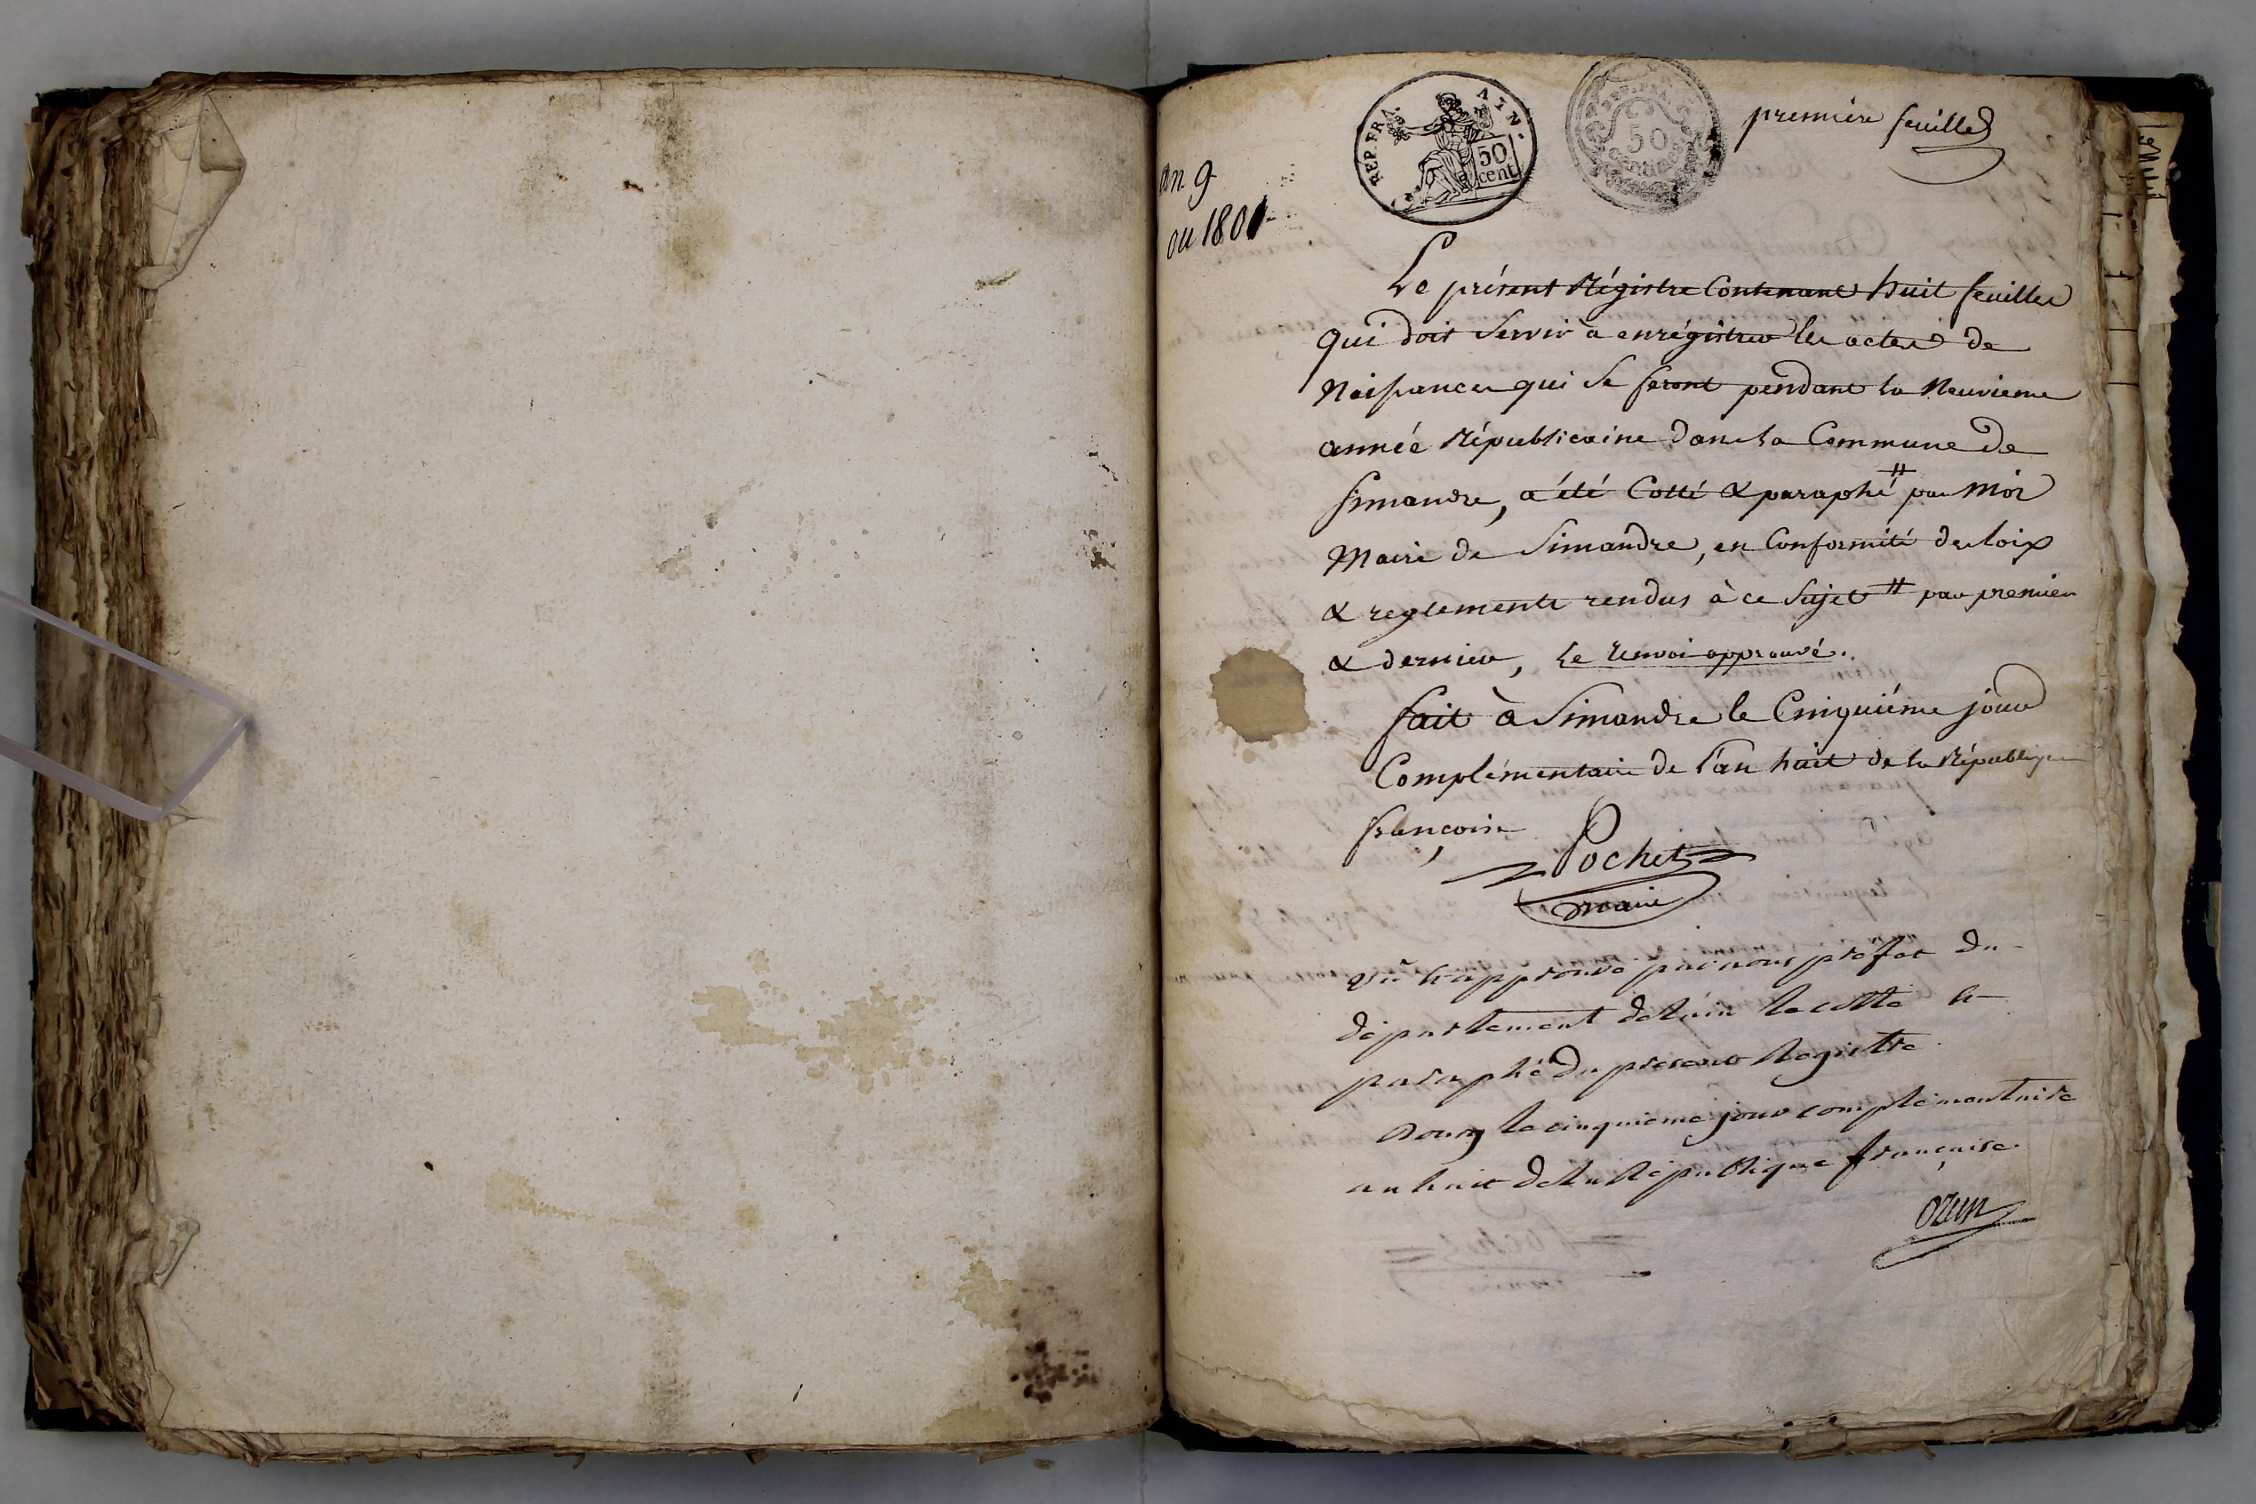 REP.FRA. AIN.
50
cent
REP. FRA.
50
CENTIMES
première feuille
an 9
ou 1801
Le présent Régistre Contenant huit feuilles
qui doit Servir à enrégistrer les actes de
Naissances qui se feront pendant la Neuvieme
année Républicaine dans la Commune de
Simandre, a été Cotté & paraphé # par Moi
Maire de Simandre, en Conformité des loix
& reglements rendus à ce Sujet # par premier
& dernier, le renvoi approuvé.
fait à Simandre le Cinquiéme jour
Complémentaire de l'an huit de la République
françoise
Pochet
maire
Vu & approuvé par nous préfet du
département de l'ain la cotte &
paraphé du présent Registre
Bourg le cinquieme jour complémentaire
an huit de la République française.
ozun